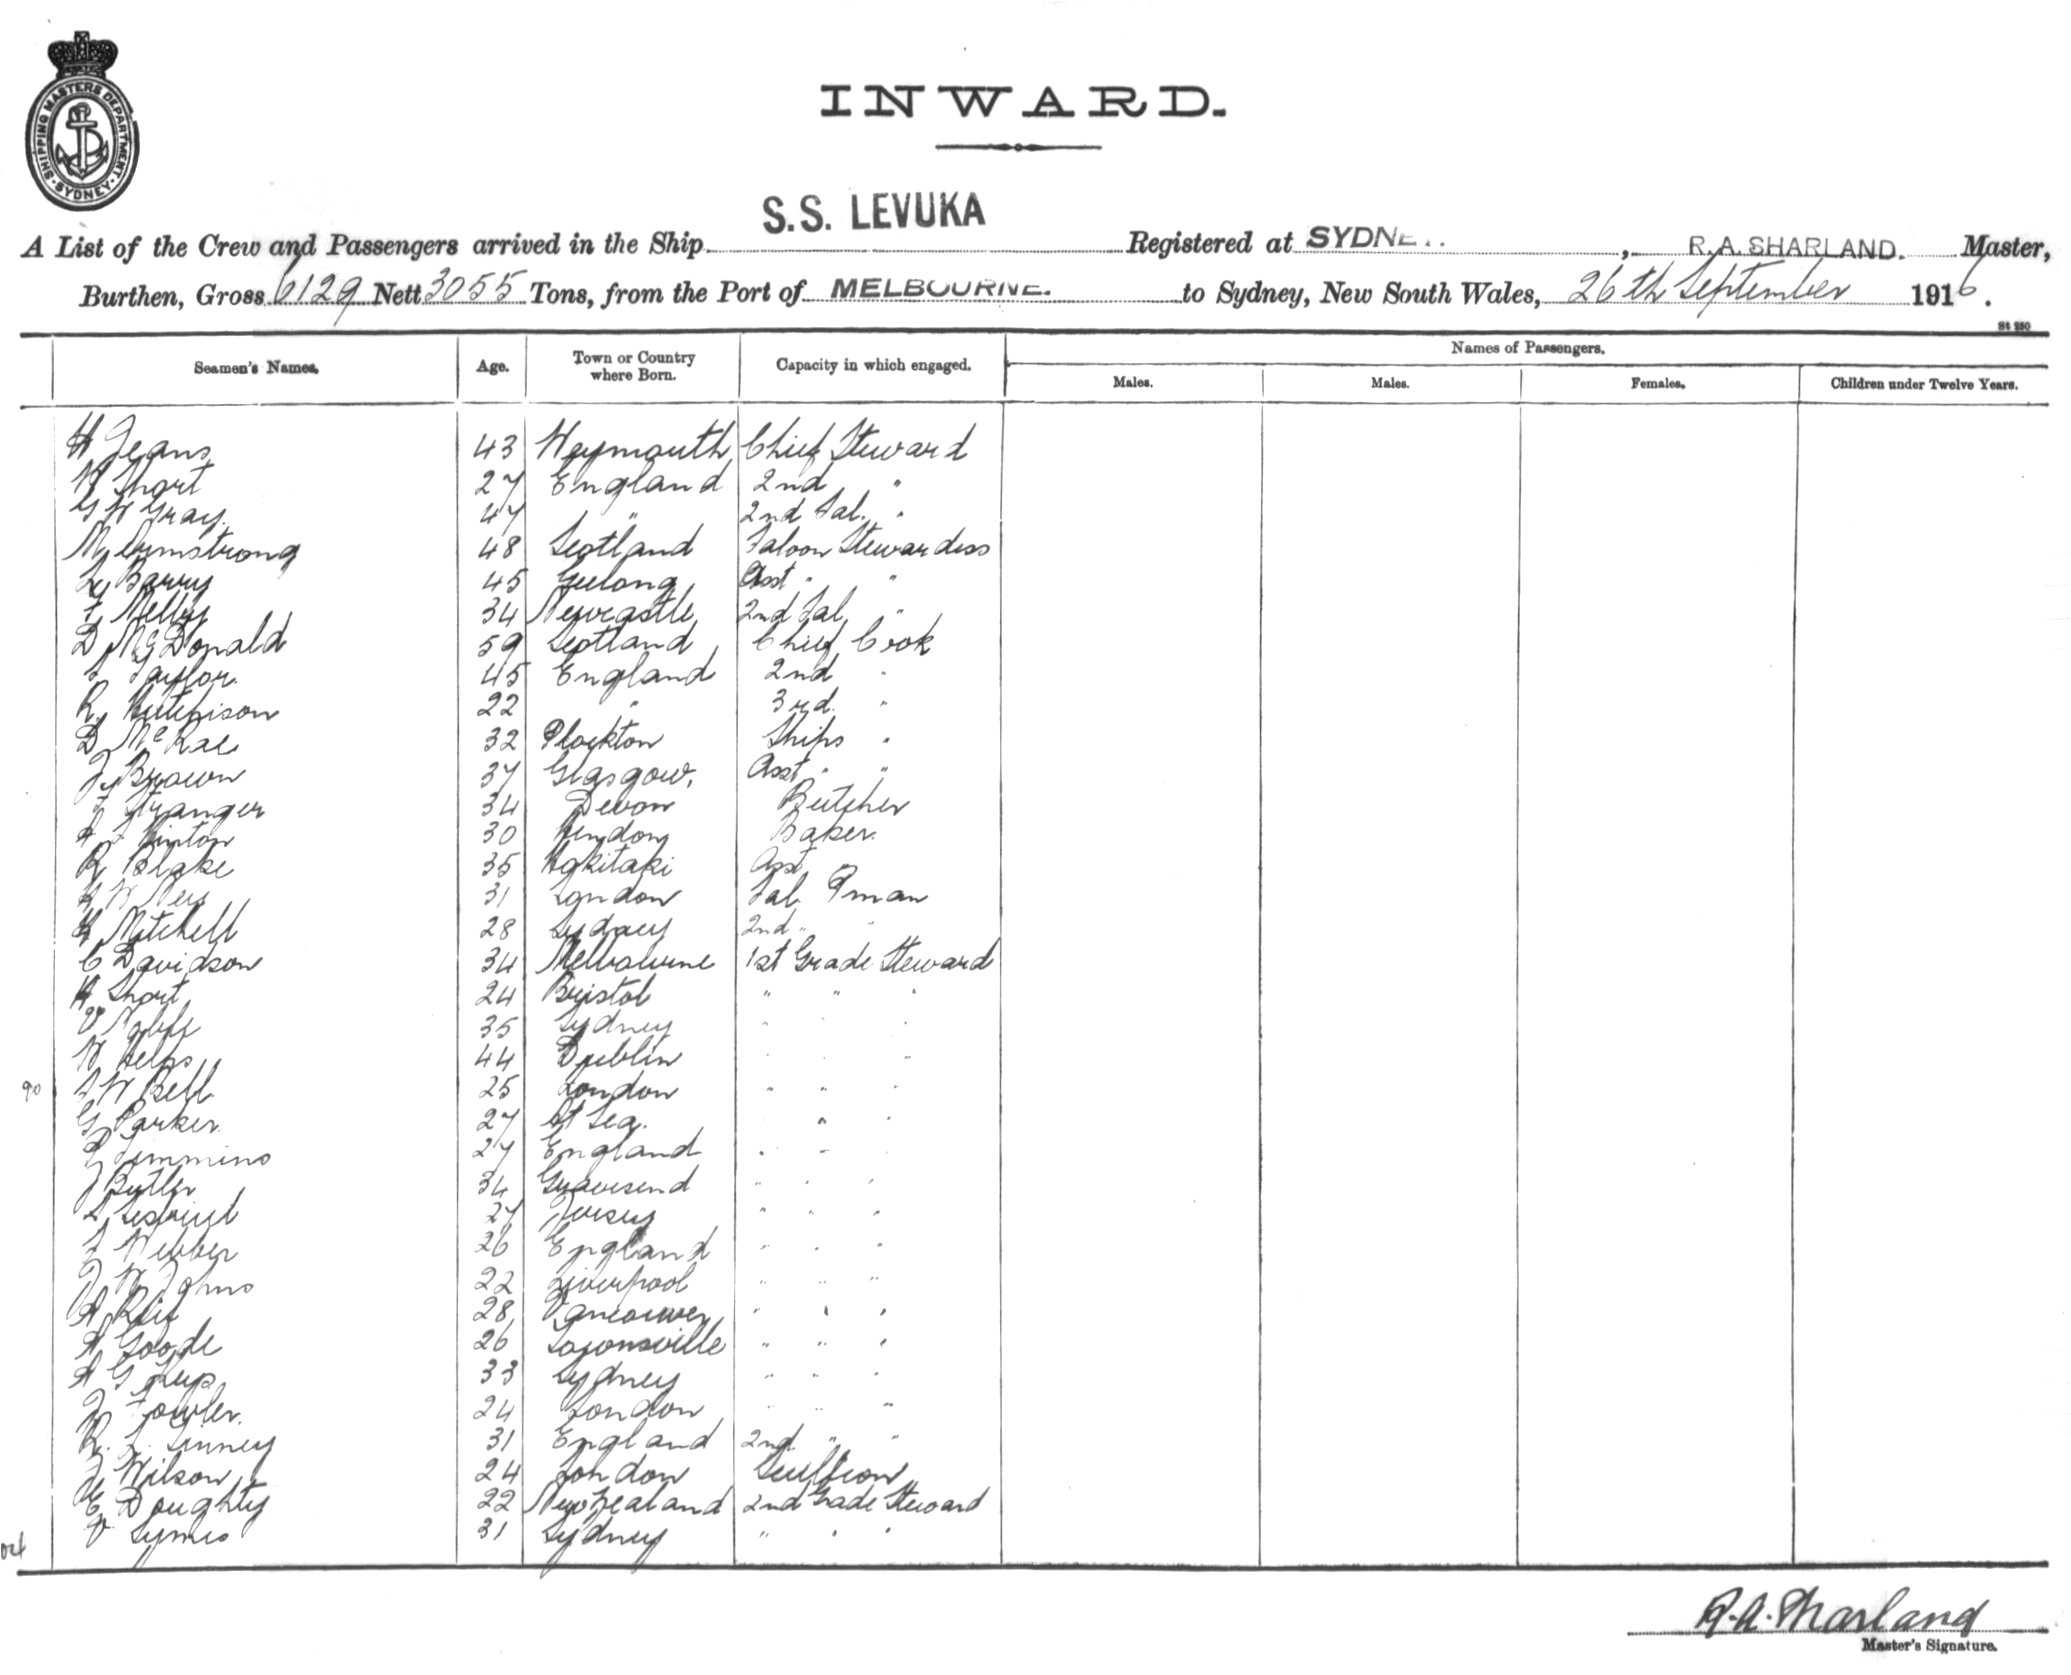 SHIPPING MASTERS DEPARTMENT. SYDNEY
INWARD.
S.S. LEVUKA
A List of the Crew and Passengers arrived in the Ship Registered at SYDNEY. , R.A. SHARLAND. Master,
Burthen, Gross 6129 Nett 3055 Tons, from the Port of MELBOURNE. to Sydney, New South Wales, 26th September 1916.
St 250
Seamen's Names. Age. Town or Country where Born. Capacity in which engaged. Names of Passengers.
Males. Males. Females. Children under Twelve Years.
H Jeans 43 Weymouth Chief Steward
Short 27 England 2nd "
G W Gray. 47 " 2nd Sal. "
M Armstrong 48 Scotland Saloon Stewardess
Barry 45 Geelong Asst " "
Melby 34 Newcastle 2nd Sal. "
D McDonald 59 Scotland Chief Cook
Taylor. 45 England 2nd "
R Hutchison 22 " 3rd. "
D McRae 32 Plockton Ships "
J Brown 37 Glasgow, Asst " "
Stranger 34 Devon Butcher
Hinton 30 Hendon Baker.
R Blake 35 Asst "
31 London Sal. Pman
H Mitchell 28 Sydney 2nd " "
C Davidson 34 Melbourne 1st Grade Steward
Short 24 Bristol " " "
35 Sydney " " "
44 Dublin " " "
90 W Bell 25 London " " "
G Parker 27 At Sea. "
27 England " "
J Butler 34 Gravesend " " "
27 Jersey " " "
Webber 26 England " " "
J W Johns 22 Liverpool " " "
28 Vancouver " " "
A Goode 26 " " "
A G 33 Sydney " " "
J Fowler. 24 London " " "
R. Tinney 31 England 2nd " "
Wilson 24 London Scullion
Doughty 22 New Zealand 2nd Grade Steward
V Symes 31 Sydney " " "
R.A. Sharland
Master's Signature.